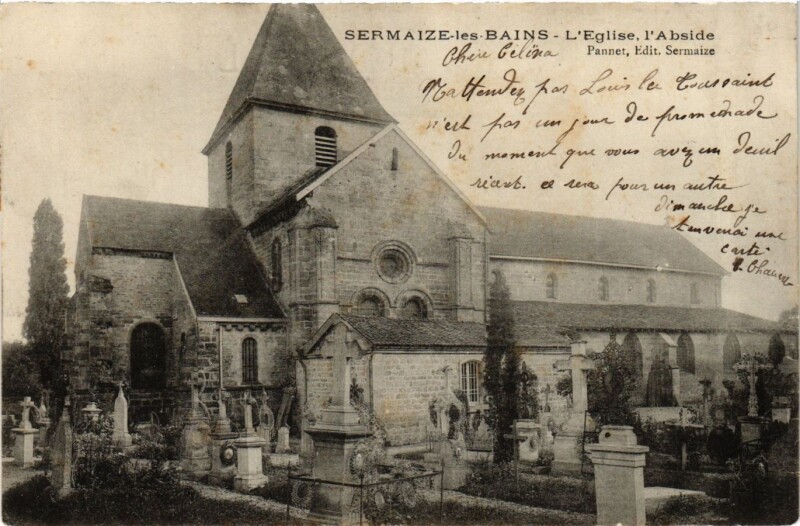 SERMAIZE-les-BAINS - L'Eglise, l'Abside
Pannet, Edit. Sermaize
Chère Célina
N'attendez pas Louis la Toussaint
n'est pas un jour de promenade
du moment que vous avez un deuil
récent. ce sera pour un autre
dimanche je
t'enverai une
carte